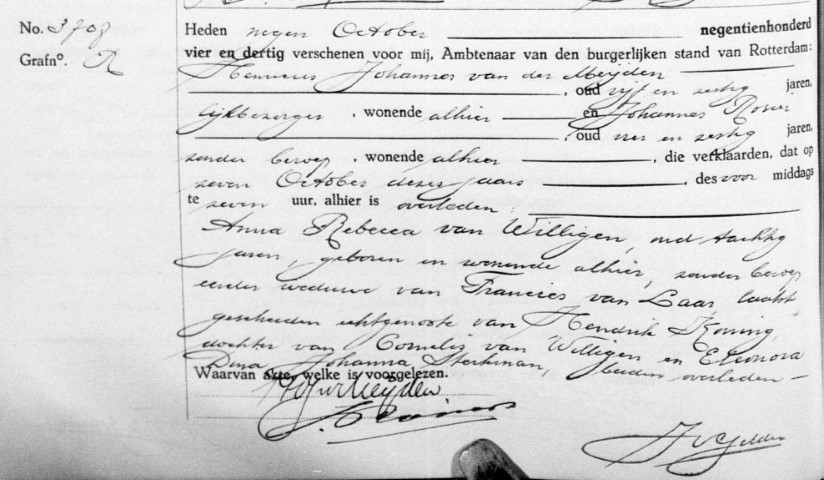 No. 3708
Grafnº. R
Heden negen October negentienhonderd
vier en dertig verschenen voor mij, Ambtenaar van den burgerlijken stand van Rotterdam:
Henricus Johannes van der Meijden
, oud vijf en zestig jaren,
lijkbezorger , wonende alhier en Johannes Rosier
, oud vier en zestig jaren,
zonder beroep , wonende alhier , die verklaarden, dat op
zeven October dezes jaars , des voor middags
te zeven uur, alhier is overleden:
Anna Rebecca van Willigen, oud tachtig
jaren, geboren en wonende alhier, zonder beroep
eerder weduwe van Francies van Laar, laatst
gescheiden echtgenoote van Hendrik Koning,
dochter van Cornelis van Willigen en Eleonora
Dina Johanna Sterkman, beiden overleden —
Waarvan akte, welke is voorgelezen.
HJvdMeijden